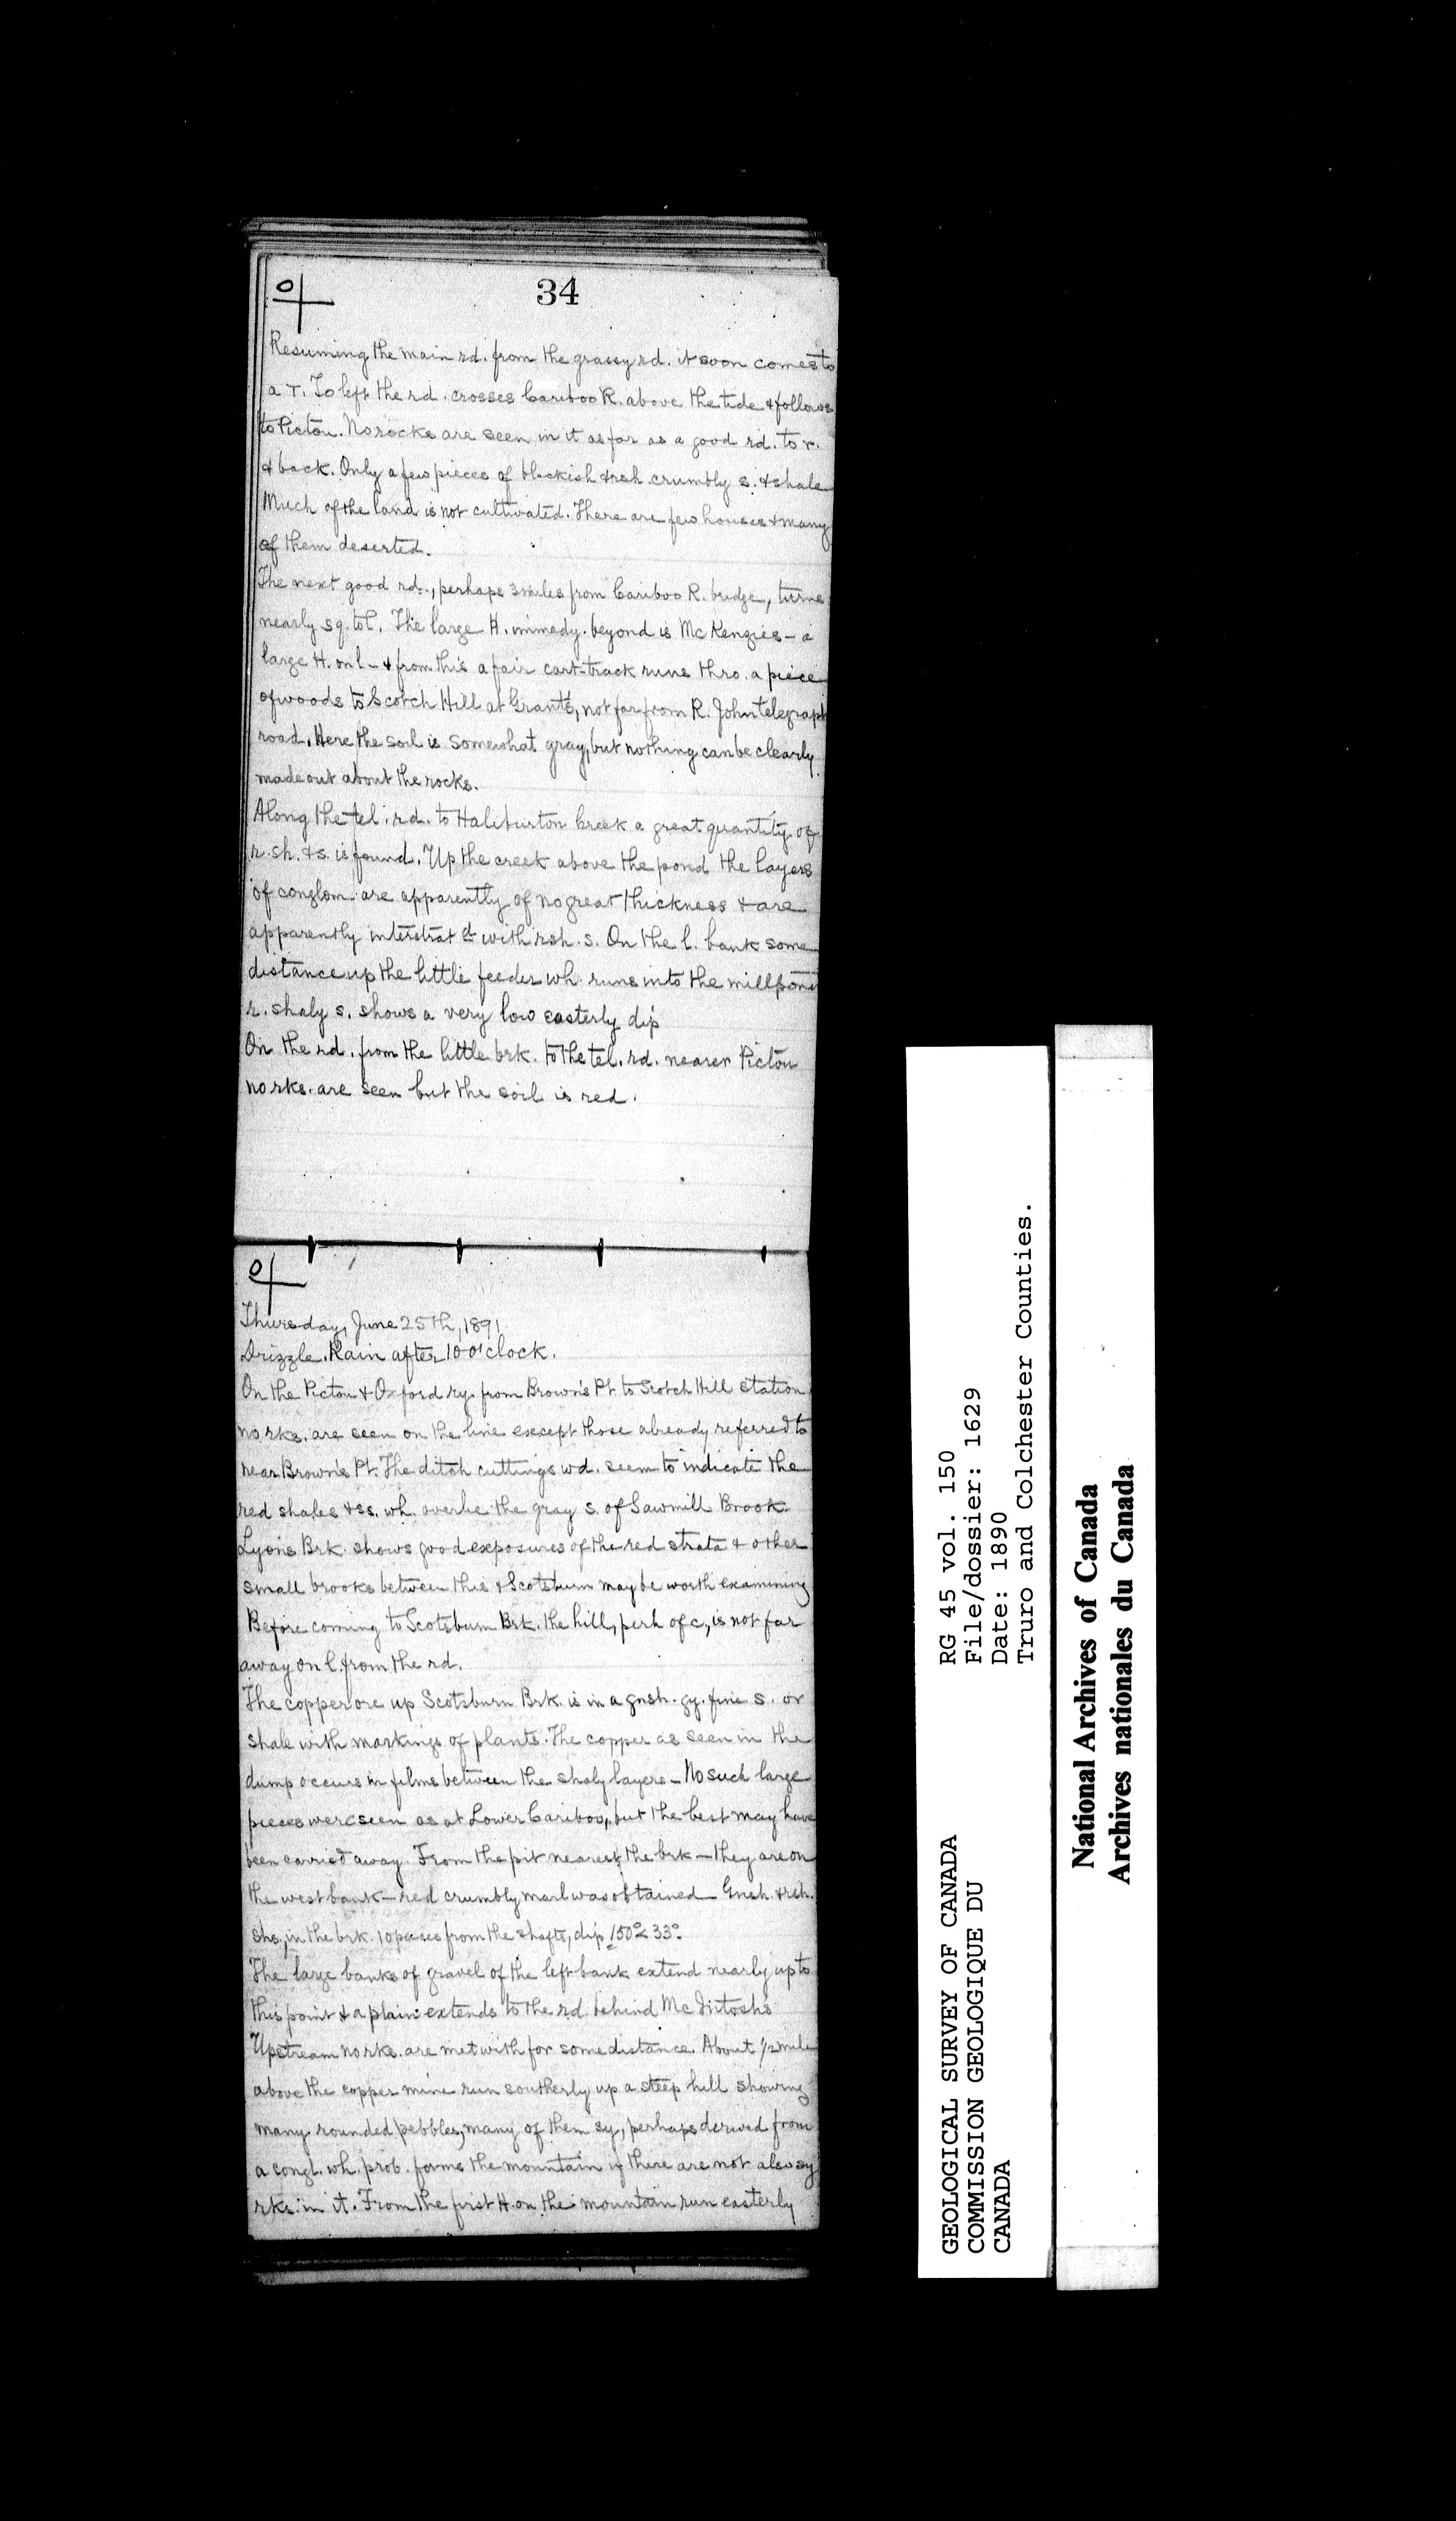 34
Resuming the main rd. from the grassy rd. it soon comes to
a T. To left the rd. crosses Cariboo R. above the tide & follows
to Pictou. No rocks are seen in it as far as a good rd. to r.
& back. Only a few pieces of blackish & rsh. crumbly s. & shale
Much of the land is not cultivated. There are few houses & many
of them deserted.
The next good rd., perhaps 3 miles from Cariboo R. bridge, turns
nearly sq. to l. The large H. immedy. beyond is McKenzies - a
large H. on l - & from this a fair cart-track runs thro. a piece
of woods to Scotch Hill at Grant's, not far from R. John telegraph
road. Here the soil is somewhat gray, but nothing can be clearly
made out about the rocks.
Along the tel. rd. to Haliburton Creek a great quantity of
r. sh. & s. is found. Up the creek above the pond the layers
of conglom. are apparently of no great thickness & are
apparently interstrat d with rsh. s. On the l. bank some
distance up the little feeder wh. runs into the millpond
r. shaly s. shows a very low easterly dip
On the rd. from the little brk. to the tel. rd. nearer Pictou
no rks. are seen but the soil is red.
Thursday, June 25th, 1891
Drizzle. Rain after 10 o'clock.
On the Pictou & Oxford ry. from Brown's Pt. to Scotch Hill station
no rks. are seen on the line except those already referred to
near Brown's Pt. The ditch cuttings wd. seem to indicate the
red shales & ss. wh. overlie the gray s. of Sawmill Brook
Lyons Brk. shows good exposures of the red strata & other
small brooks between this & Scotsburn may be worth examining
Before coming to Scotsburn Brk. the hill, perh of c, is not far
away on l. from the rd.
The copper ore up Scotsburn Brk. is in a gnsh. gy. fine s. or
shale with markings of plants. The copper as seen in the
dump occurs in films between the shaly layers - No such large
pieces were seen as at Lower Cariboo, but the best may have
been carried away. From the pit nearest the brk - they are on
the west bank - red crumbly marl was obtained - Gnsh. & rsh.
shs., in the brk. 10 paces from the shafts, dip 150° < 33°.
The large banks of gravel of the left bank extend nearly up to
this point & a plain extends to the rd. behind McIntosh's
Upstream no rks. are met with for some distance. About 1/2 mile
above the copper mine run southerly up a steep hill showing
many rounded pebbles, many of them sy, perhaps derived from
a congl. wh. prob. forms the mountain if there are not also sy
rks. in it. From the first H. on the mountain run easterly
GEOLOGICAL SURVEY OF CANADA
COMMISSION GEOLOGIQUE DU
CANADA
RG 45 vol. 150
File/dossier: 1629
Date: 1890
Truro and Colchester Counties.
National Archives of Canada
Archives nationales du Canada